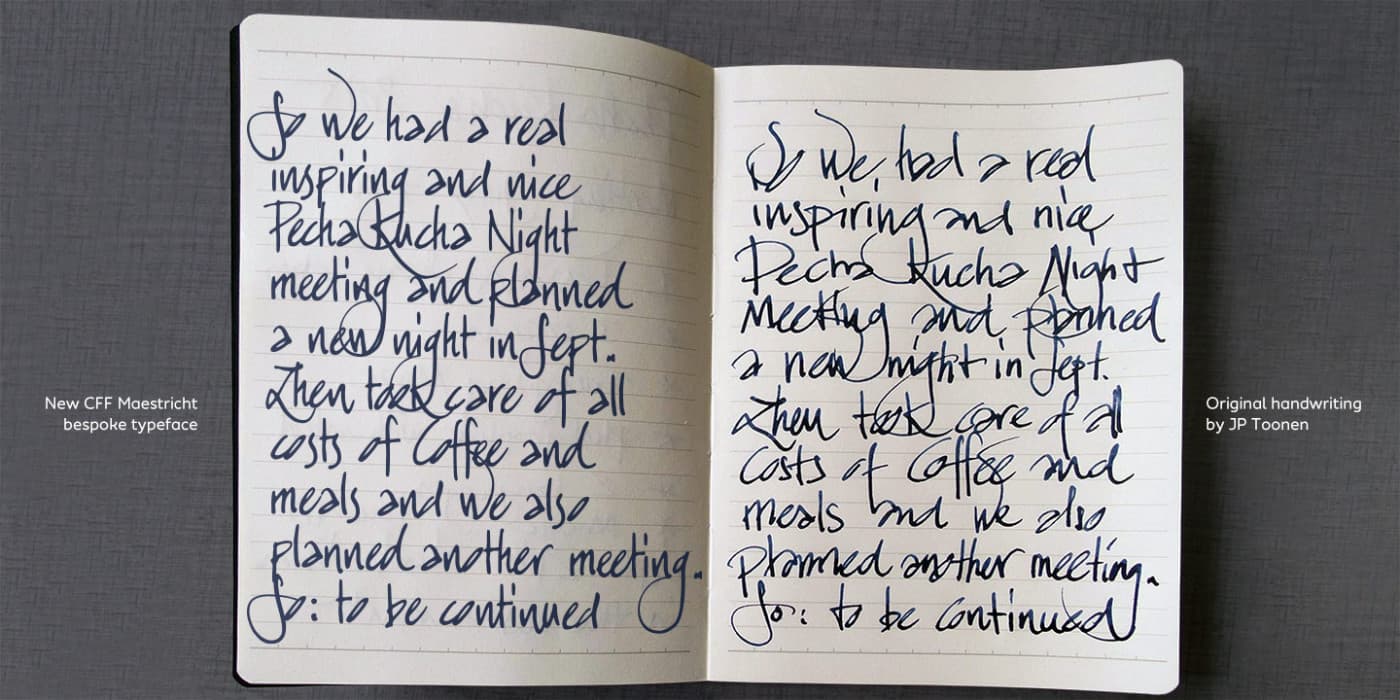 So we had a real
inspiring and nice
Pecha Kucha Night
meeting and planned
a new night in Sept.
Then took care of all
costs of Coffee and
meals and we also
planned another meeting.
So: to be continued
So we had a real
inspiring and nice
Pecha Kucha Night
Meeting and planned
a new night in Sept.
Then took care of all
Costs of Coffee and
meals and we also
planned another meeting.
So: to be continued
New CFF Maestricht
bespoke typeface
Original handwriting
by JP Toonen